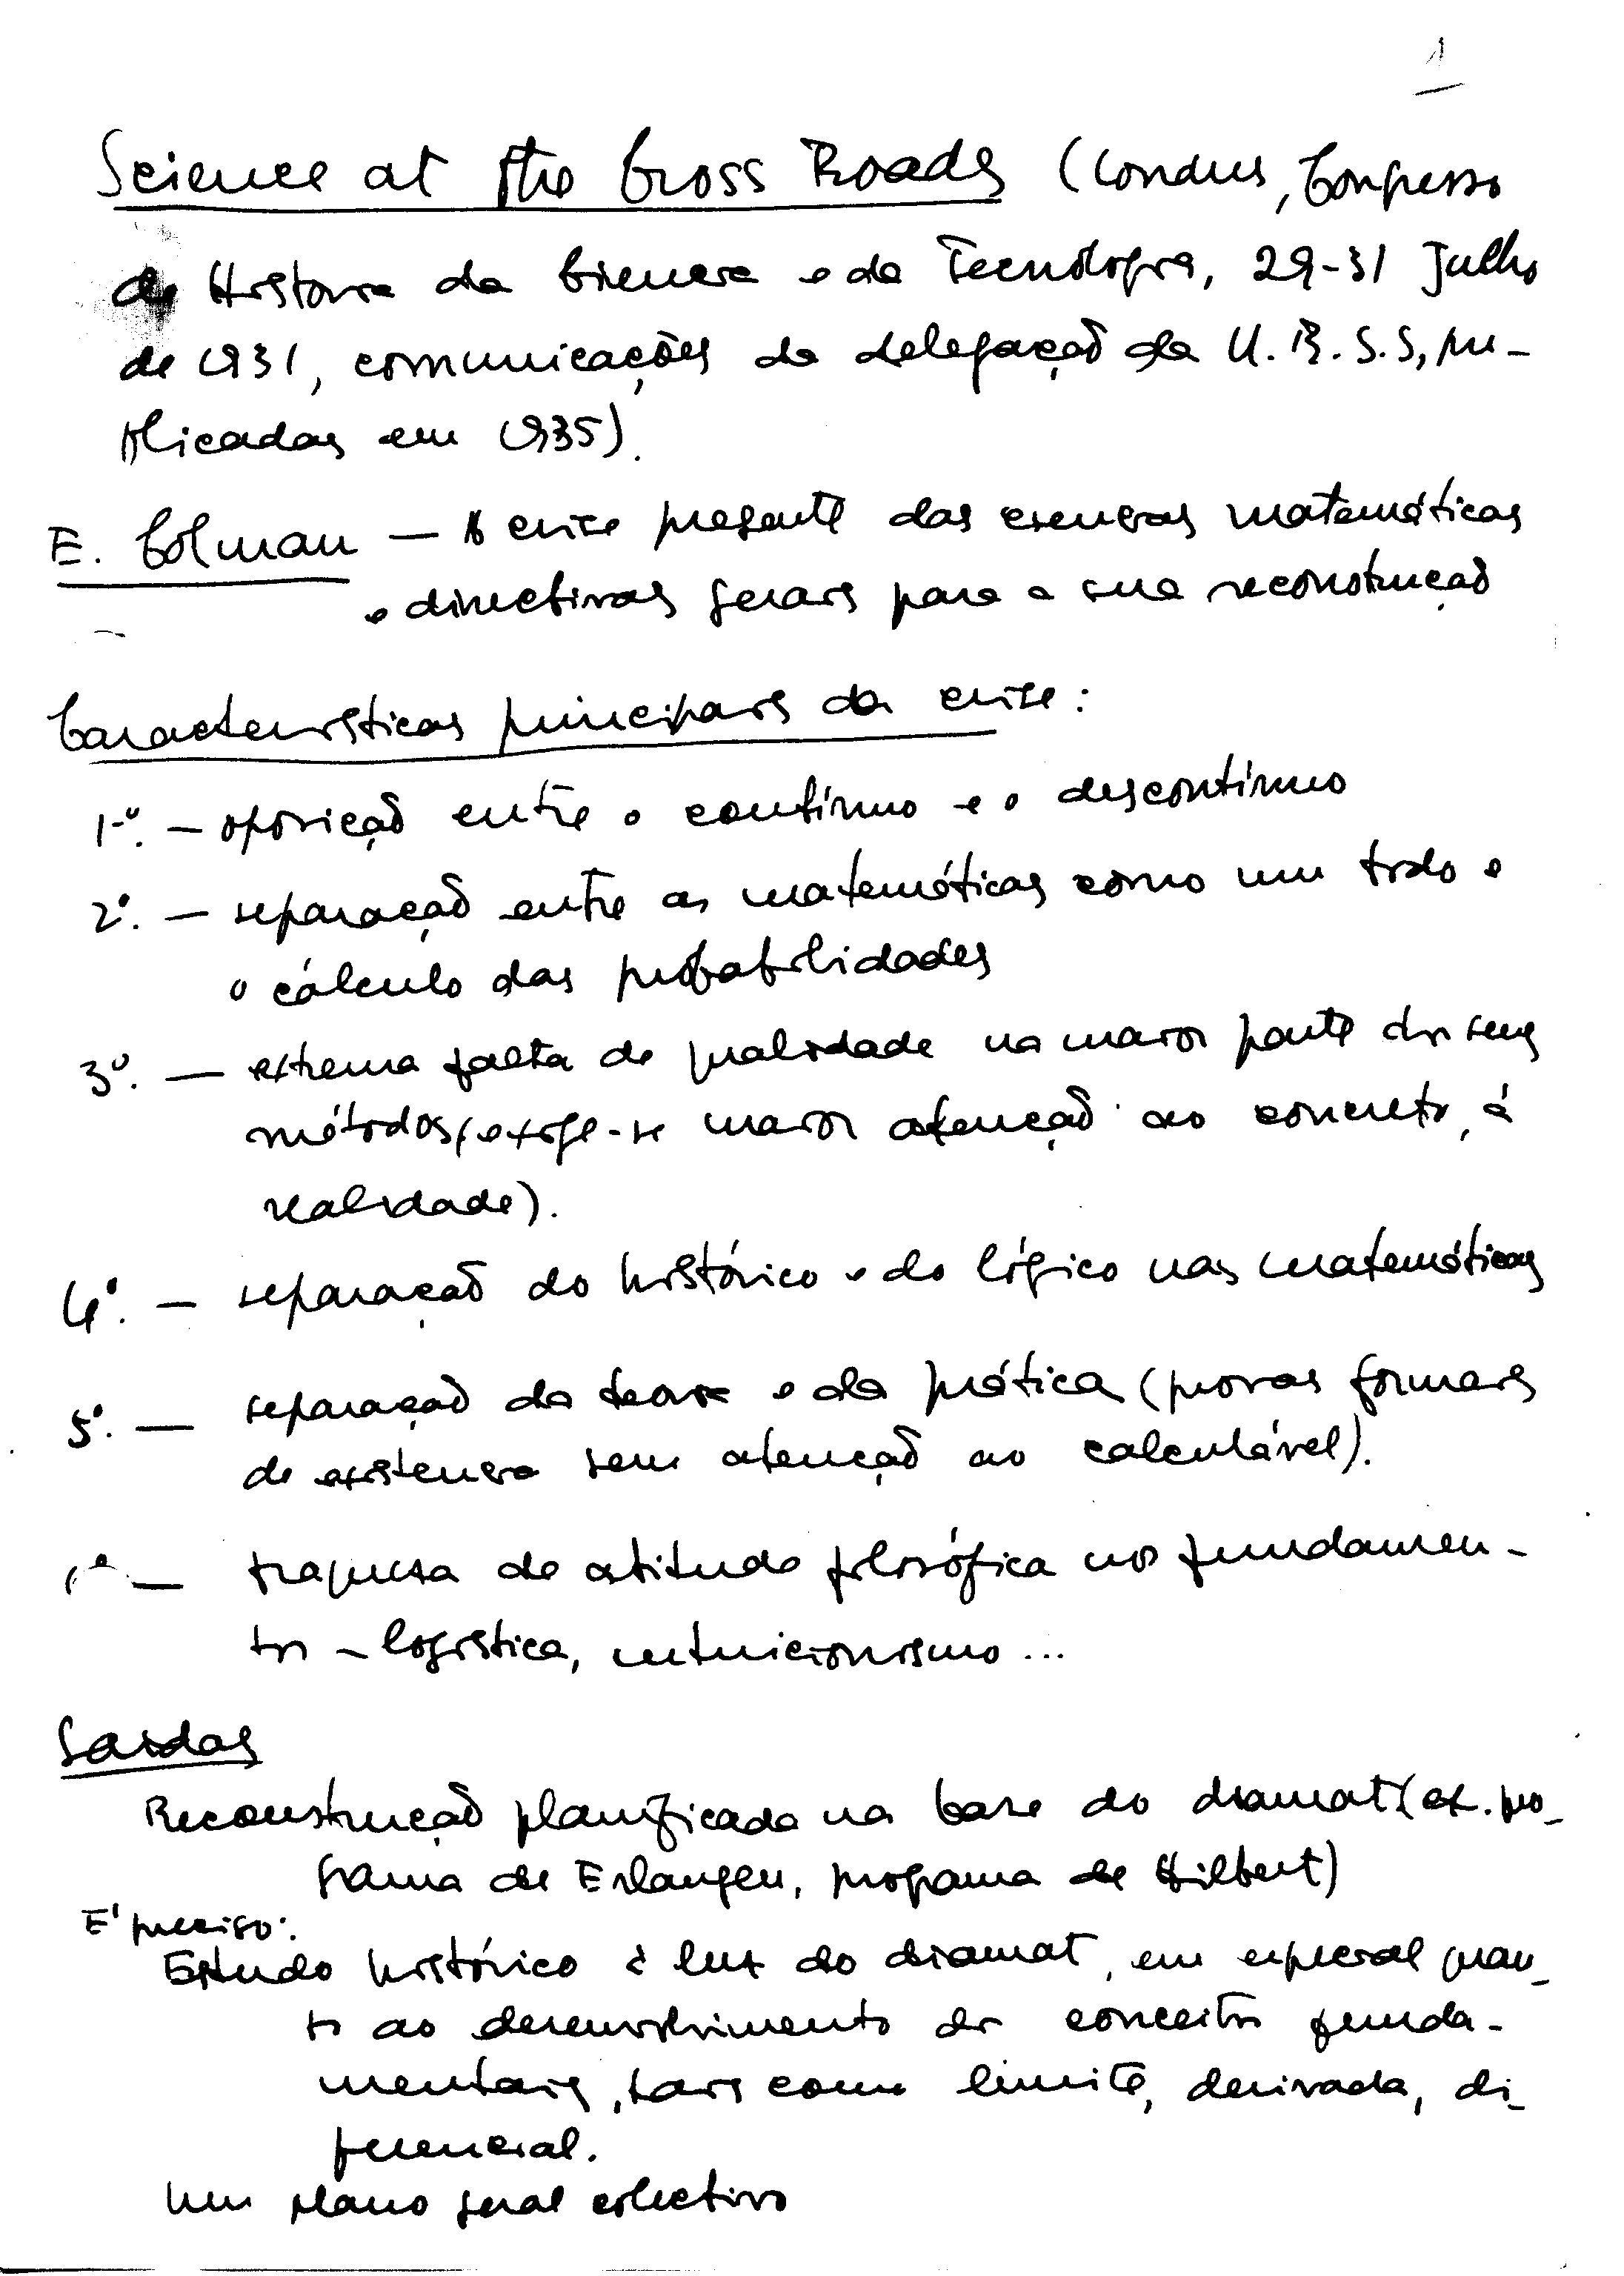 1
Science at the Cross Roads (Londres, Congresso
de História da Ciência e da Tecnologia, 29-31 Julho
de 1931, comunicações da delegação da U.R.S.S, pu-
blicadas em 1935).
E. Colman — A crise presente das ciências matemáticas
e directivas gerais para a sua reconstrução
Características principais da crise:
1º. — oposição entre o contínuo e o descontínuo
2º. — separação entre as matemáticas como um todo e
o cálculo das probabilidades
3º. — extrema falta de qualidade na maior parte dos seus
métodos (exige-se maior atenção ao concreto, à
realidade).
4º. — separação do histórico e do lógico nas matemáticas
5º. — separação da teoria e da prática (provas formais
de existência sem atenção ao calculável).
— fraqueza de atitude filosófica nos fundamen-
tos – logística, intuicionismo...
Saídas
Reconstrução planificada na base do diamat (cf. pro-
grama de Erlangen, programa de Hilbert)
E' preciso:
Estudo histórico à luz do diamat, em especial quan-
to ao desenvolvimento dos conceitos funda-
mentais, tais como limite, derivada, di-
ferencial.
Um plano geral colectivo